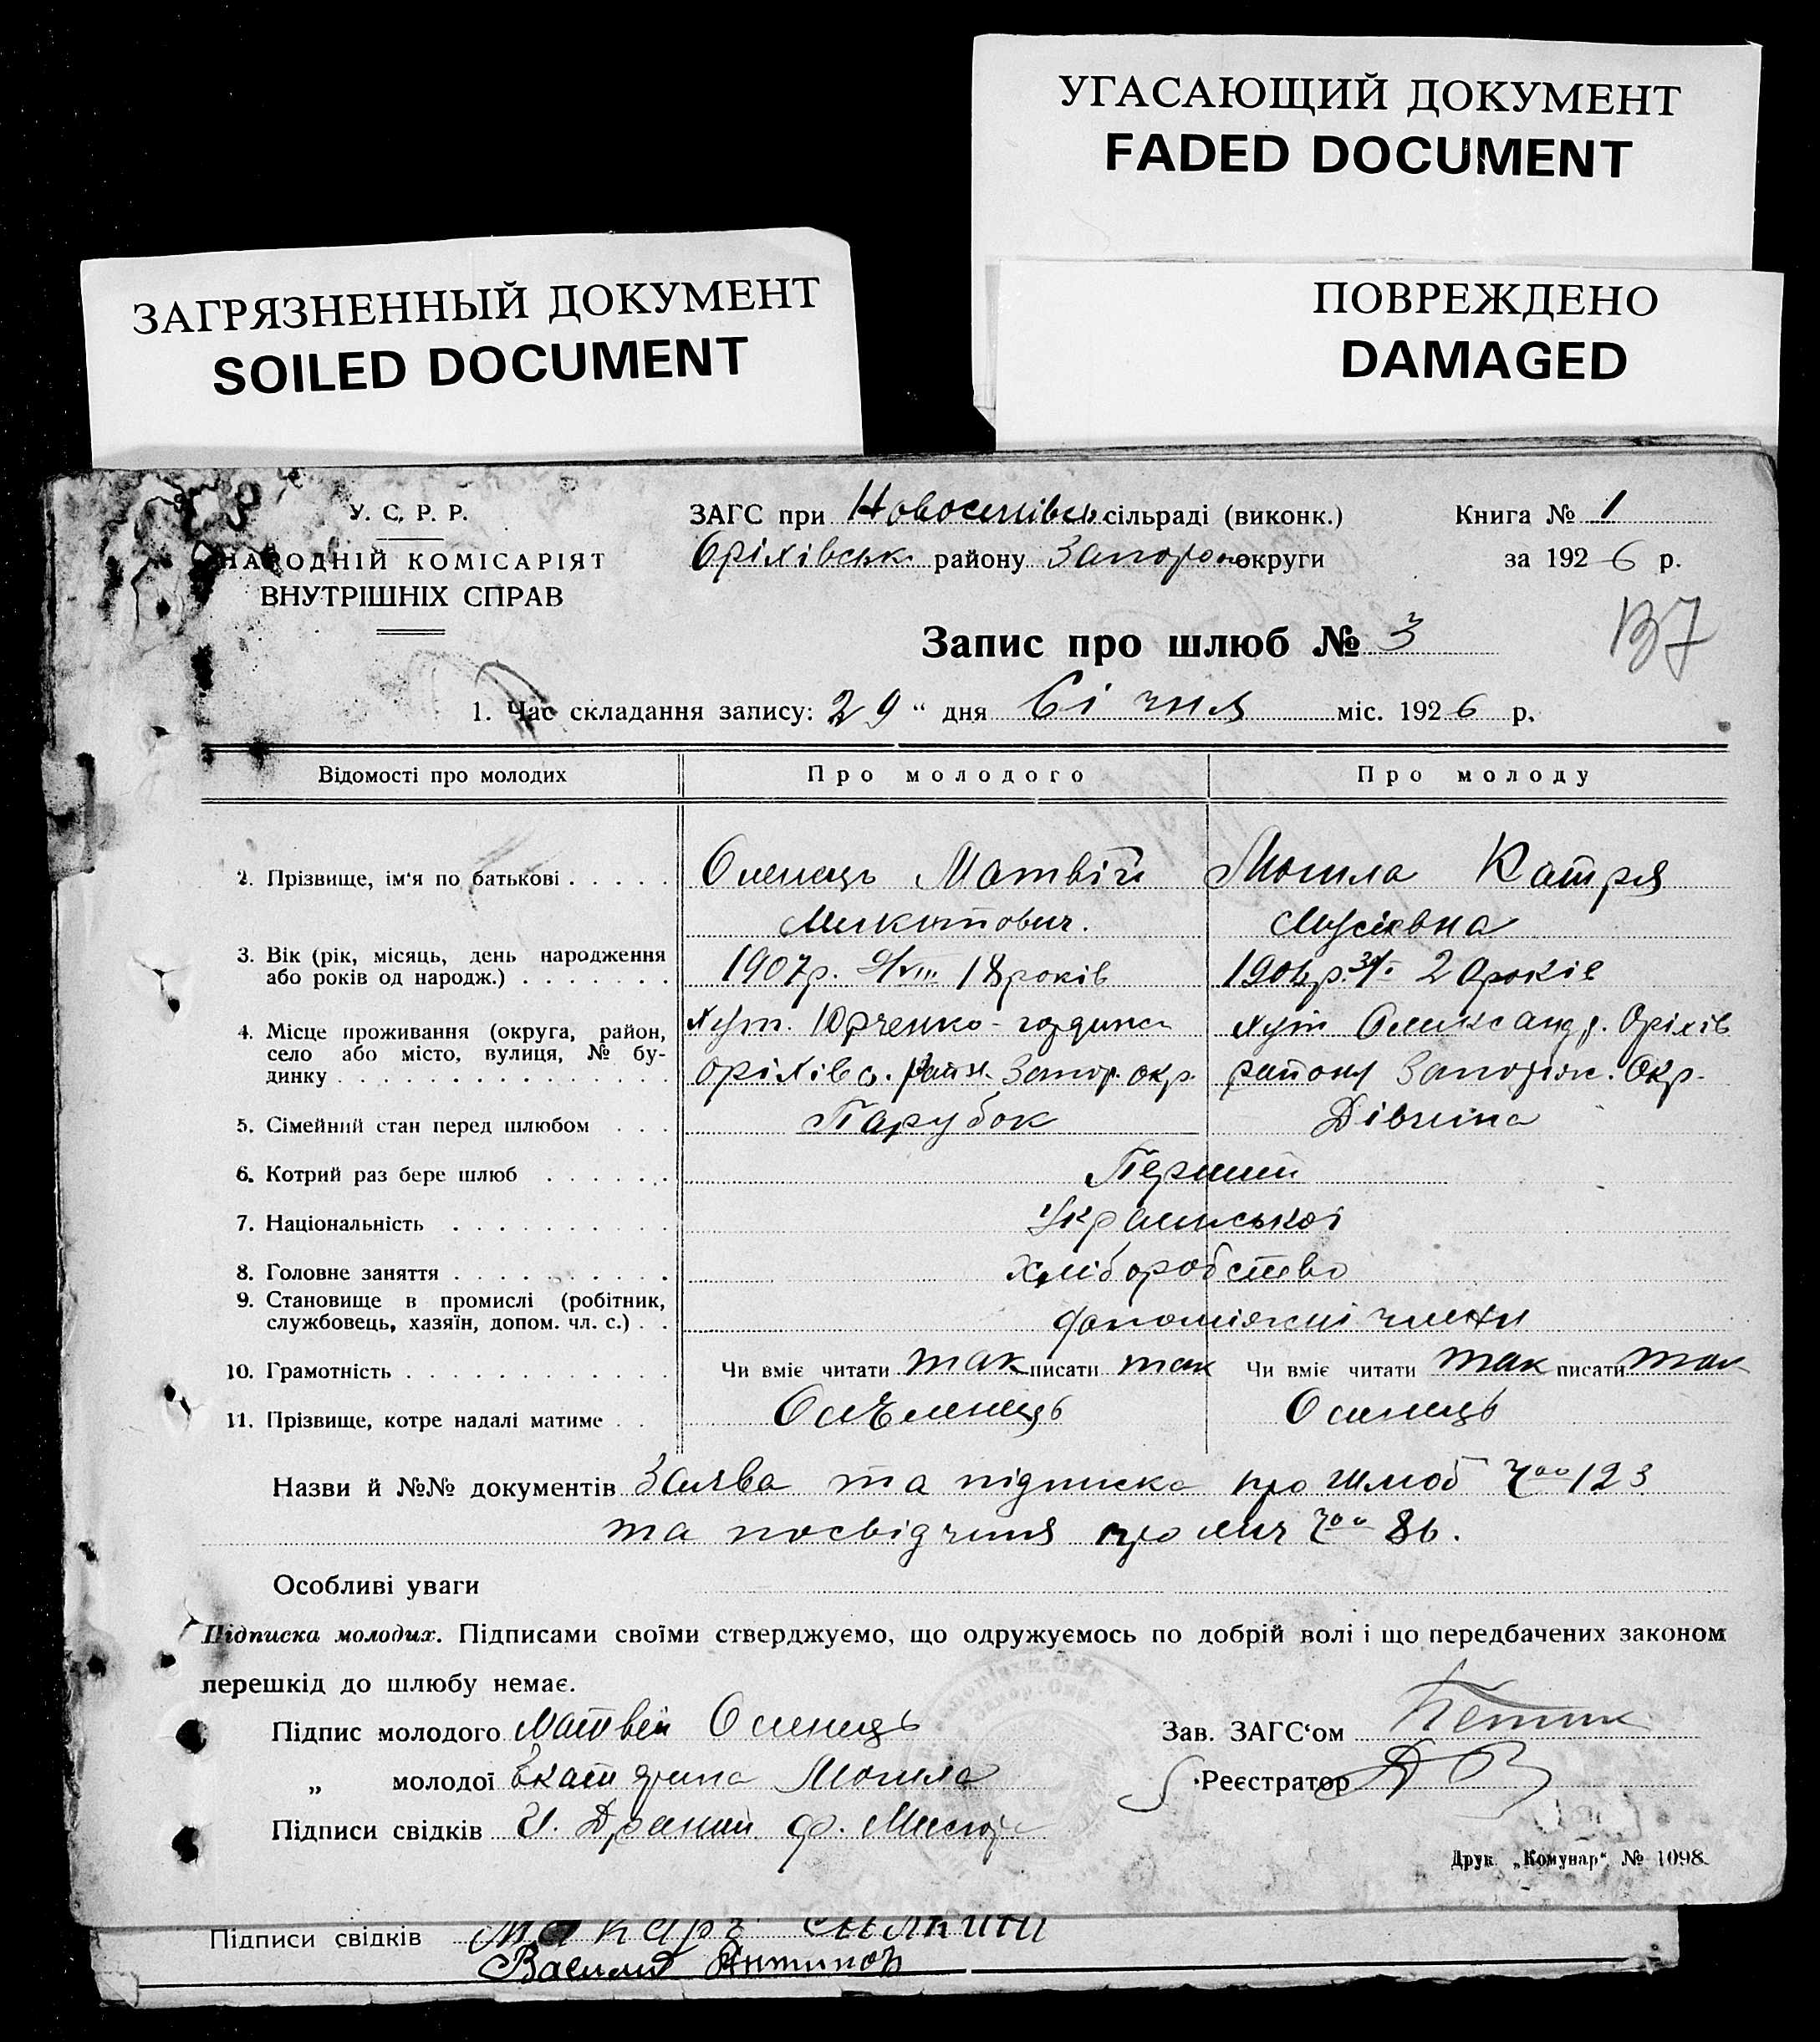 УГАСАЮЩИЙ ДОКУМЕНТ
FADED DOCUMENT
ЗАГРЯЗНЕННЫЙ ДОКУМЕНТ
SOILED DOCUMENT
ПОВРЕЖДЕНО
DAMAGED
У. С. Р. Р.
НАРОДНІЙ КОМІСАРІЯТ
ВНУТРІШНІХ СПРАВ
ЗАГС при Новоселівськ сільраді (виконк.)
Оріхівськ. району Запорож округи
Книга № 1
за 1926 р.
Запис про шлюб № 3
137
1. Час складання запису: 29 " дня Січня міс. 1926 р.
Відомості про молодих Про молодого Про молоду
2. Прізвище, ім'я по батькові . . . . . Оленець Матвій Могила Катря
Микитович. Мусіевна
3. Вік (рік, місяць, день народження
або років од народж.) . . . . . . . 1907р. 9/VIII 18 років 20 років
4. Місце проживання (округа, район,
село або місто, вулиця, № бу-
динку . . . . . . . . . . . . . . .
Хут. Юрченко- Хут Александр. Оріхів
Оріхівс. район. Запор. окр. району Запоріж. Окр.
5. Сімейний стан перед шлюбом . . . Парубок Дівчина
6. Котрий раз бере шлюб . . . . . . Перший
7. Національність . . . . . . . . . . Української
8. Головне заняття . . . . . . . . . . Хліборобство
9. Становище в промислі (робітник,
службовець, хазяїн, допом. чл. с.) . . допоміжні члени
10. Грамотність . . . . . . . . . . . . Чи вміє читати так писати так Чи вміє читати так писати так
11. Прізвище, котре надалі матиме . . Оленець Оленець
Назви й №№ документів Заява та підписка про шлюб 123
та посвідчиня про 86.
Особливі уваги
Підписка молодих. Підписами своїми стверджуємо, що одружуємось по добрій волі і що передбачених законом
перешкід до шлюбу немає.
Підпис молодого Матвей Оленець
„ молодої Екатерина Могила
Підписи свідків
Зав. ЗАГС'ом
Реєстратор
Друк. „Комунар" № 1098.
Підписи свідків Макаръ
Василий Антинов